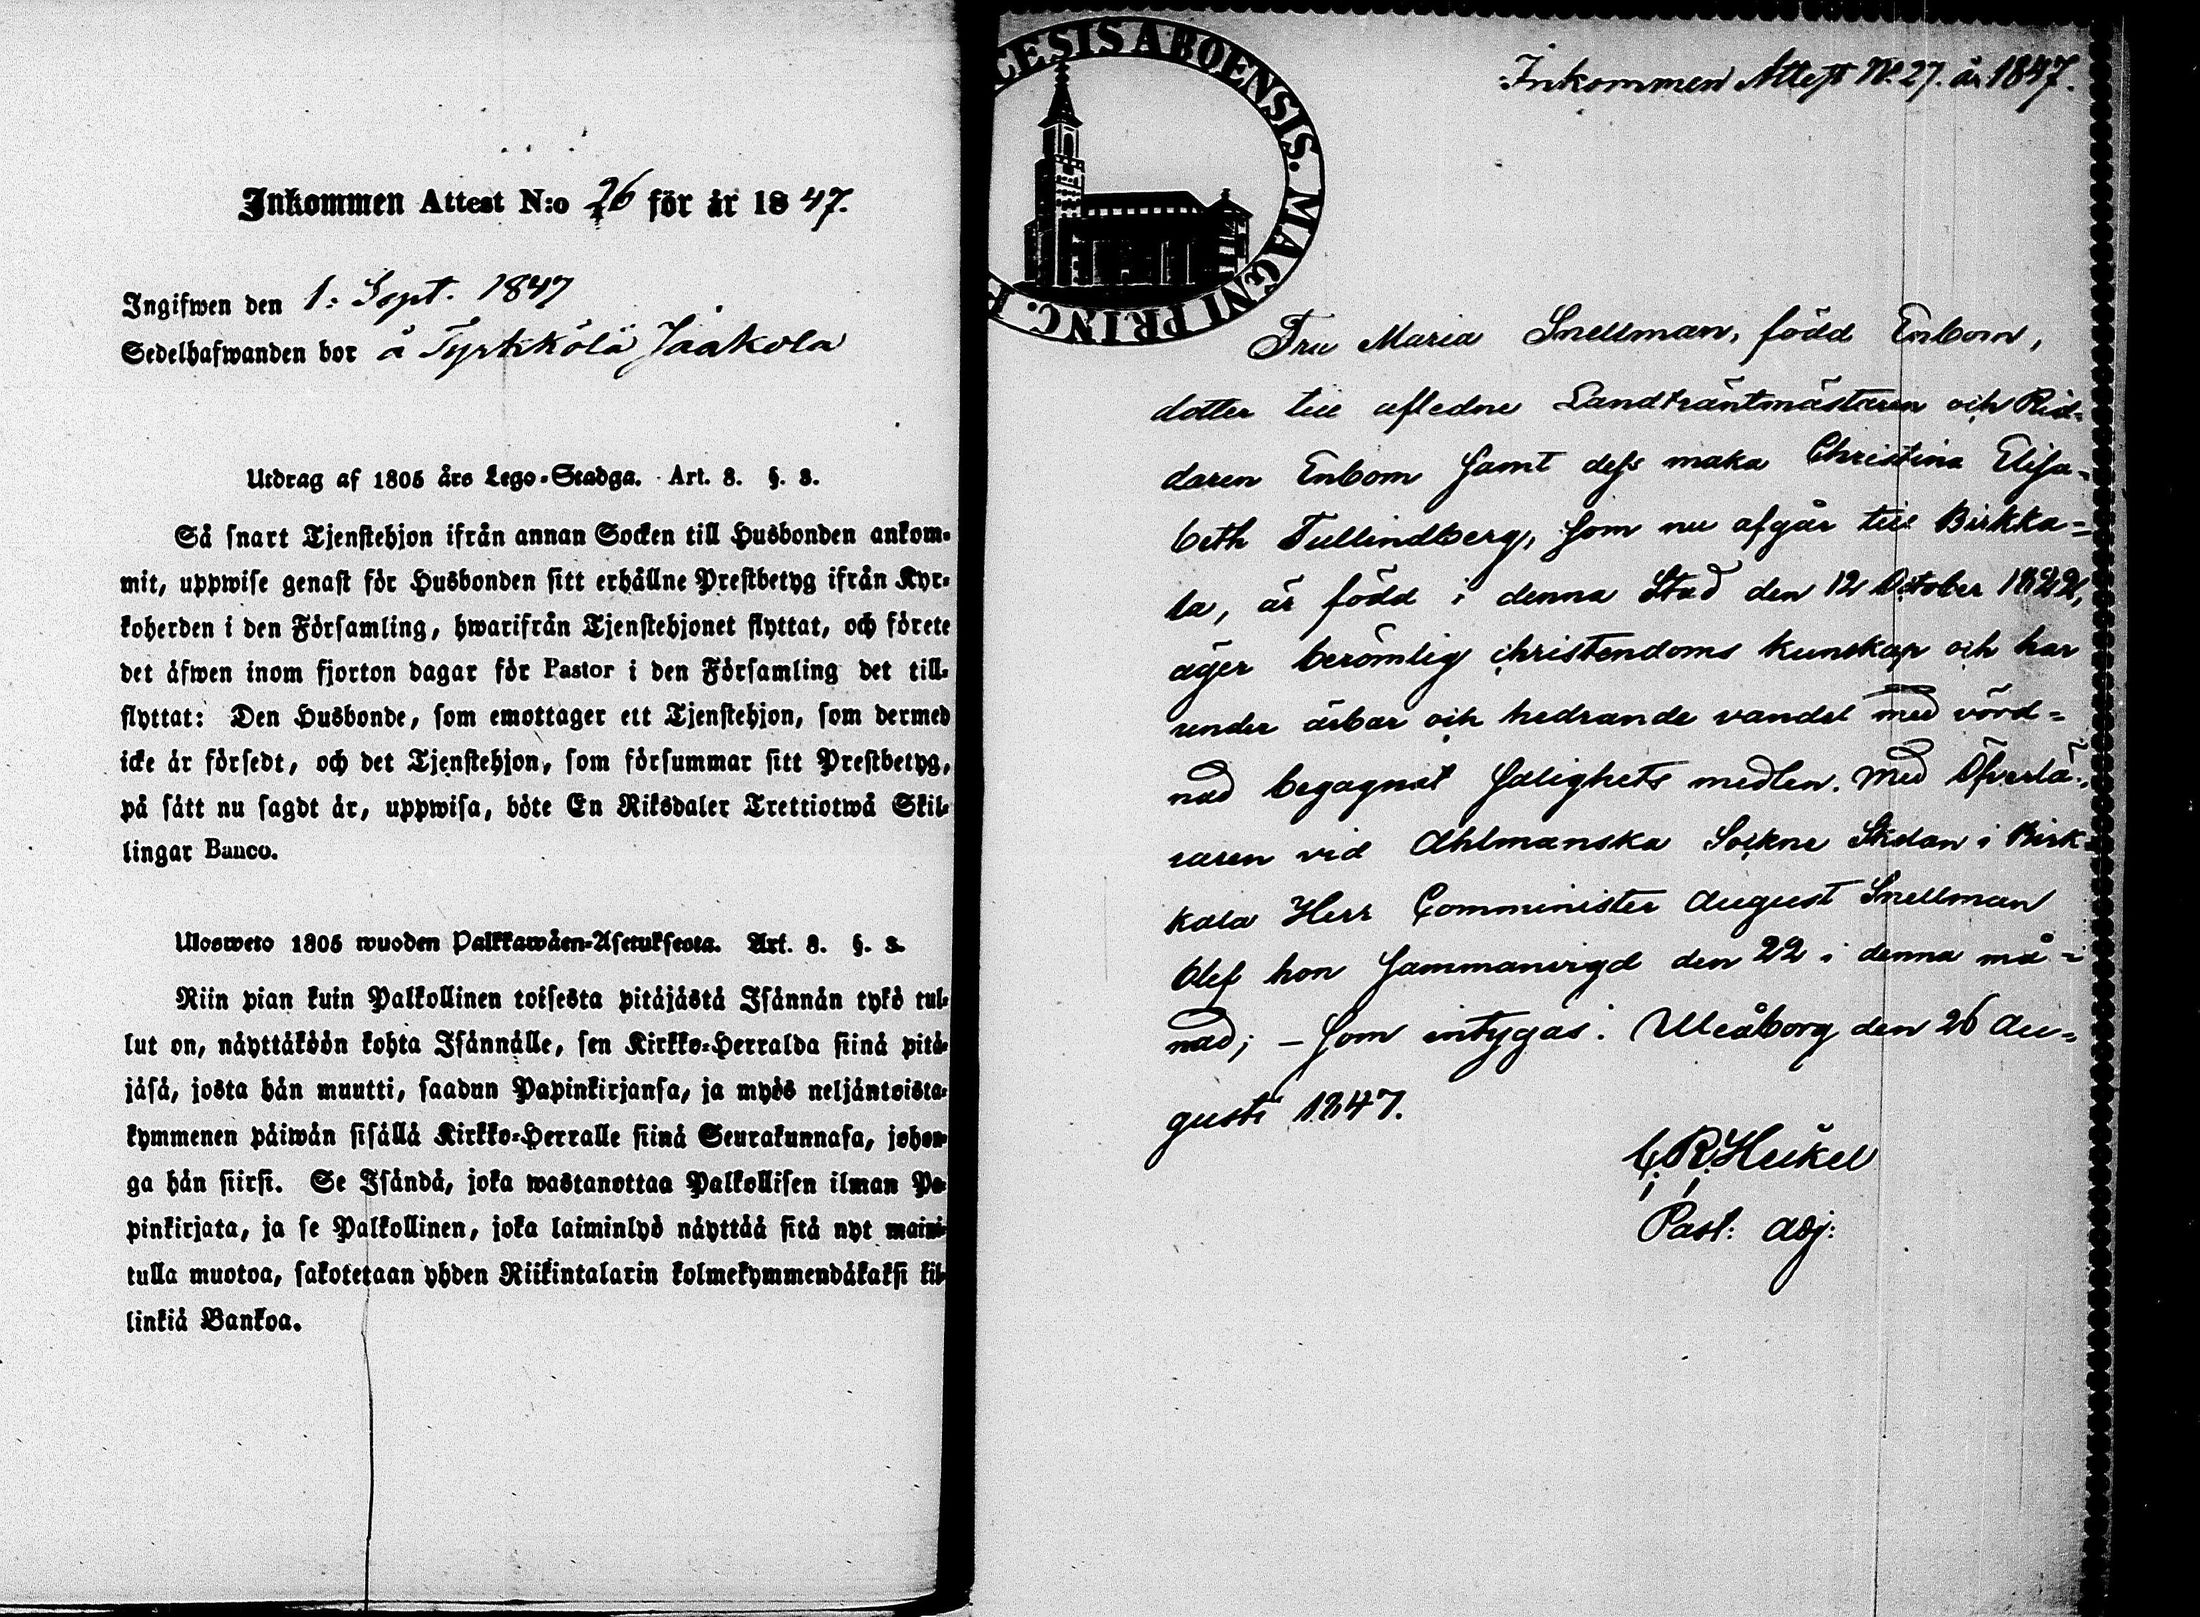 Inkommen Attest N:o 26 för år 1847.
Ingifwen den 1: Sept. 1847
Sedelhafwanden bor å Tyrkkölä Jaakola
Utdrag af 1805 års Lego-Stadga. Art. 8. §. 3.
Så snart Tjenstehjon ifrån annan Socken till Husbonden ankom-
mit, uppwise genast för Husbonden sitt erhållne Prestbetyg ifrån Kyr-
koherden i den Församling, hwarifrån Tjenstehjonet flyttat, och förete
det äfwen inom fjorton dagar för Pastor i den Församling det till-
flyttat: Den Husbonde, som emottager ett Tjenstehjon, som dermed
icke är försedt, och det Tjenstehjon, som försummar sitt Prestbetyg,
på sätt nu sagdt är, uppwisa, böte En Riksdaler Trettiotwå Skil-
lingar Banco.
Ulosweto 1805 wuoden Palkkawäen-Asetuksesta. Art. 8. §. 3.
Niin pian kuin Palkollinen toisesta pitäjästä Isännän tykö tul-
lut on, näyttäköön kohta Isännälle, sen Kirkko-Herralda siinä pitä-
jäsä, josta hän muutti, saadun Papinkirjansa, ja myös neljäntoista-
kymmenen päiwän sisällä Kirkko-Herralle siinä Seurakunnasa, johon-
ga hän siirsi. Se Isändä, joka wastanottaa Palkollisen ilman Pa-
pinkirjata, ja se Palkollinen, joka laiminlyö näyttää sitä nyt maini-
tulla muotoa, sakotetaan yhden Riikintalarin kolmekymmendäkaksi kil-
linkiä Bankoa.
CESIS ABOENSIS. MAGNI PRINC. F
Inkommen Attest N:o 27. år 1847.
Fru Maria Snellman, född Enbom,
dotter till afledne Landträntmästaren och Rid-
daren Enbom samt dess maka Christina Elisa-
beth Tullindberg, som nu afgår till Birkka-
la, är född i denna Stad den 12 October 1822,
äger berömlig christendoms kunskap och har
under ärbar och hedrande vandel med vörd-
nad begagnat salighets medlen. Med Öfverlä-
raren vid Ahlmanska Sockne Skolan i Birk-
kala Herr Comminister August Snellman
blef hon sammanvigd den 22 i denna må-
nad; – som intygas. Uleåborg den 26 Au-
gusti 1847.
C. R. Heikel
Past: adj: